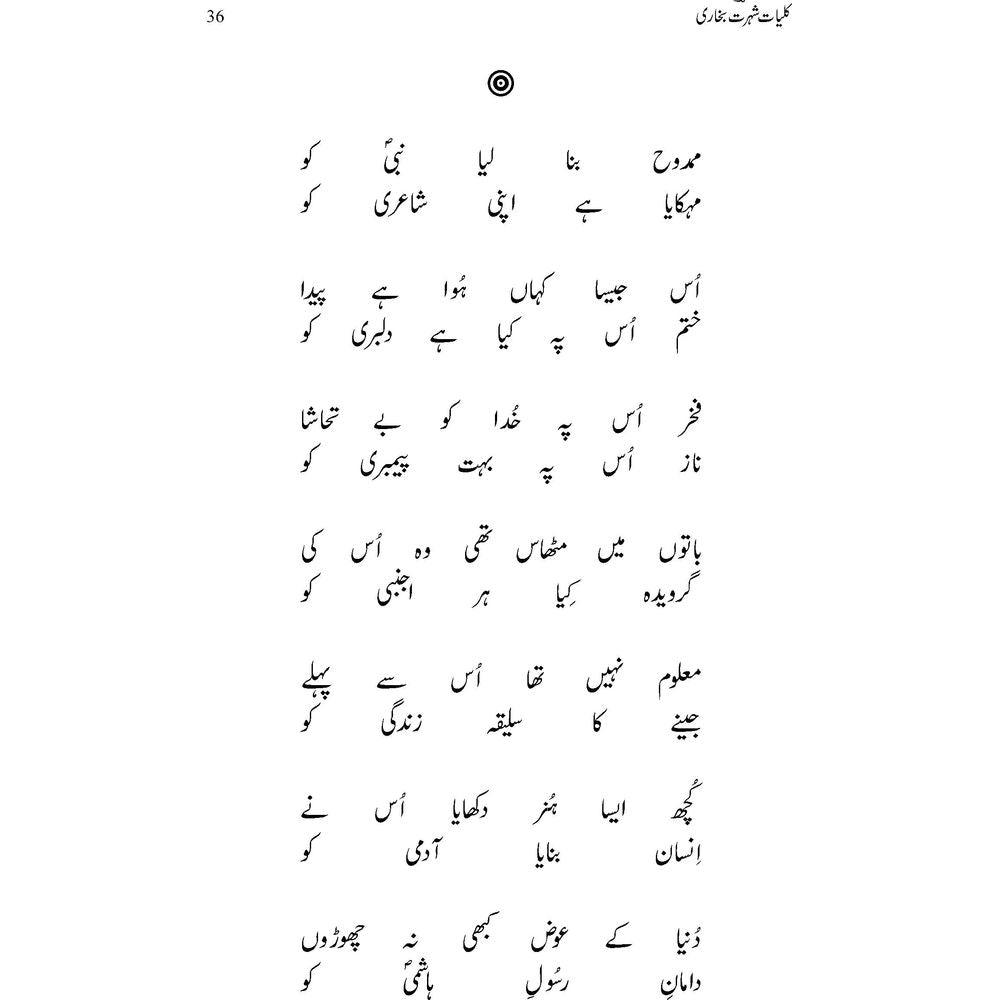 36
کلیات شہرت بخاری
ممدوح بنا لیا نبیؐ کو
مہکایا ہے اپنی شاعری کو
اُس جیسا کہاں ہُوا ہے پیدا
ختم اُس پہ کیا ہے دلبری کو
فخر اُس پہ خُدا کو بے تحاشا
ناز اُس پہ بہت پیمبری کو
باتوں میں مٹھاس تھی وہ اُس کی
گرویدہ کِیا ہر اجنبی کو
معلوم نہیں تھا اُس سے پہلے
جینے کا سلیقہ زندگی کو
کُچھ ایسا ہُنر دکھایا اُس نے
اِنسان بنایا آدمی کو
دُنیا کے عوض کبھی نہ چھوڑوں
دامانِ رسُولِ ہاشمیؐ کو